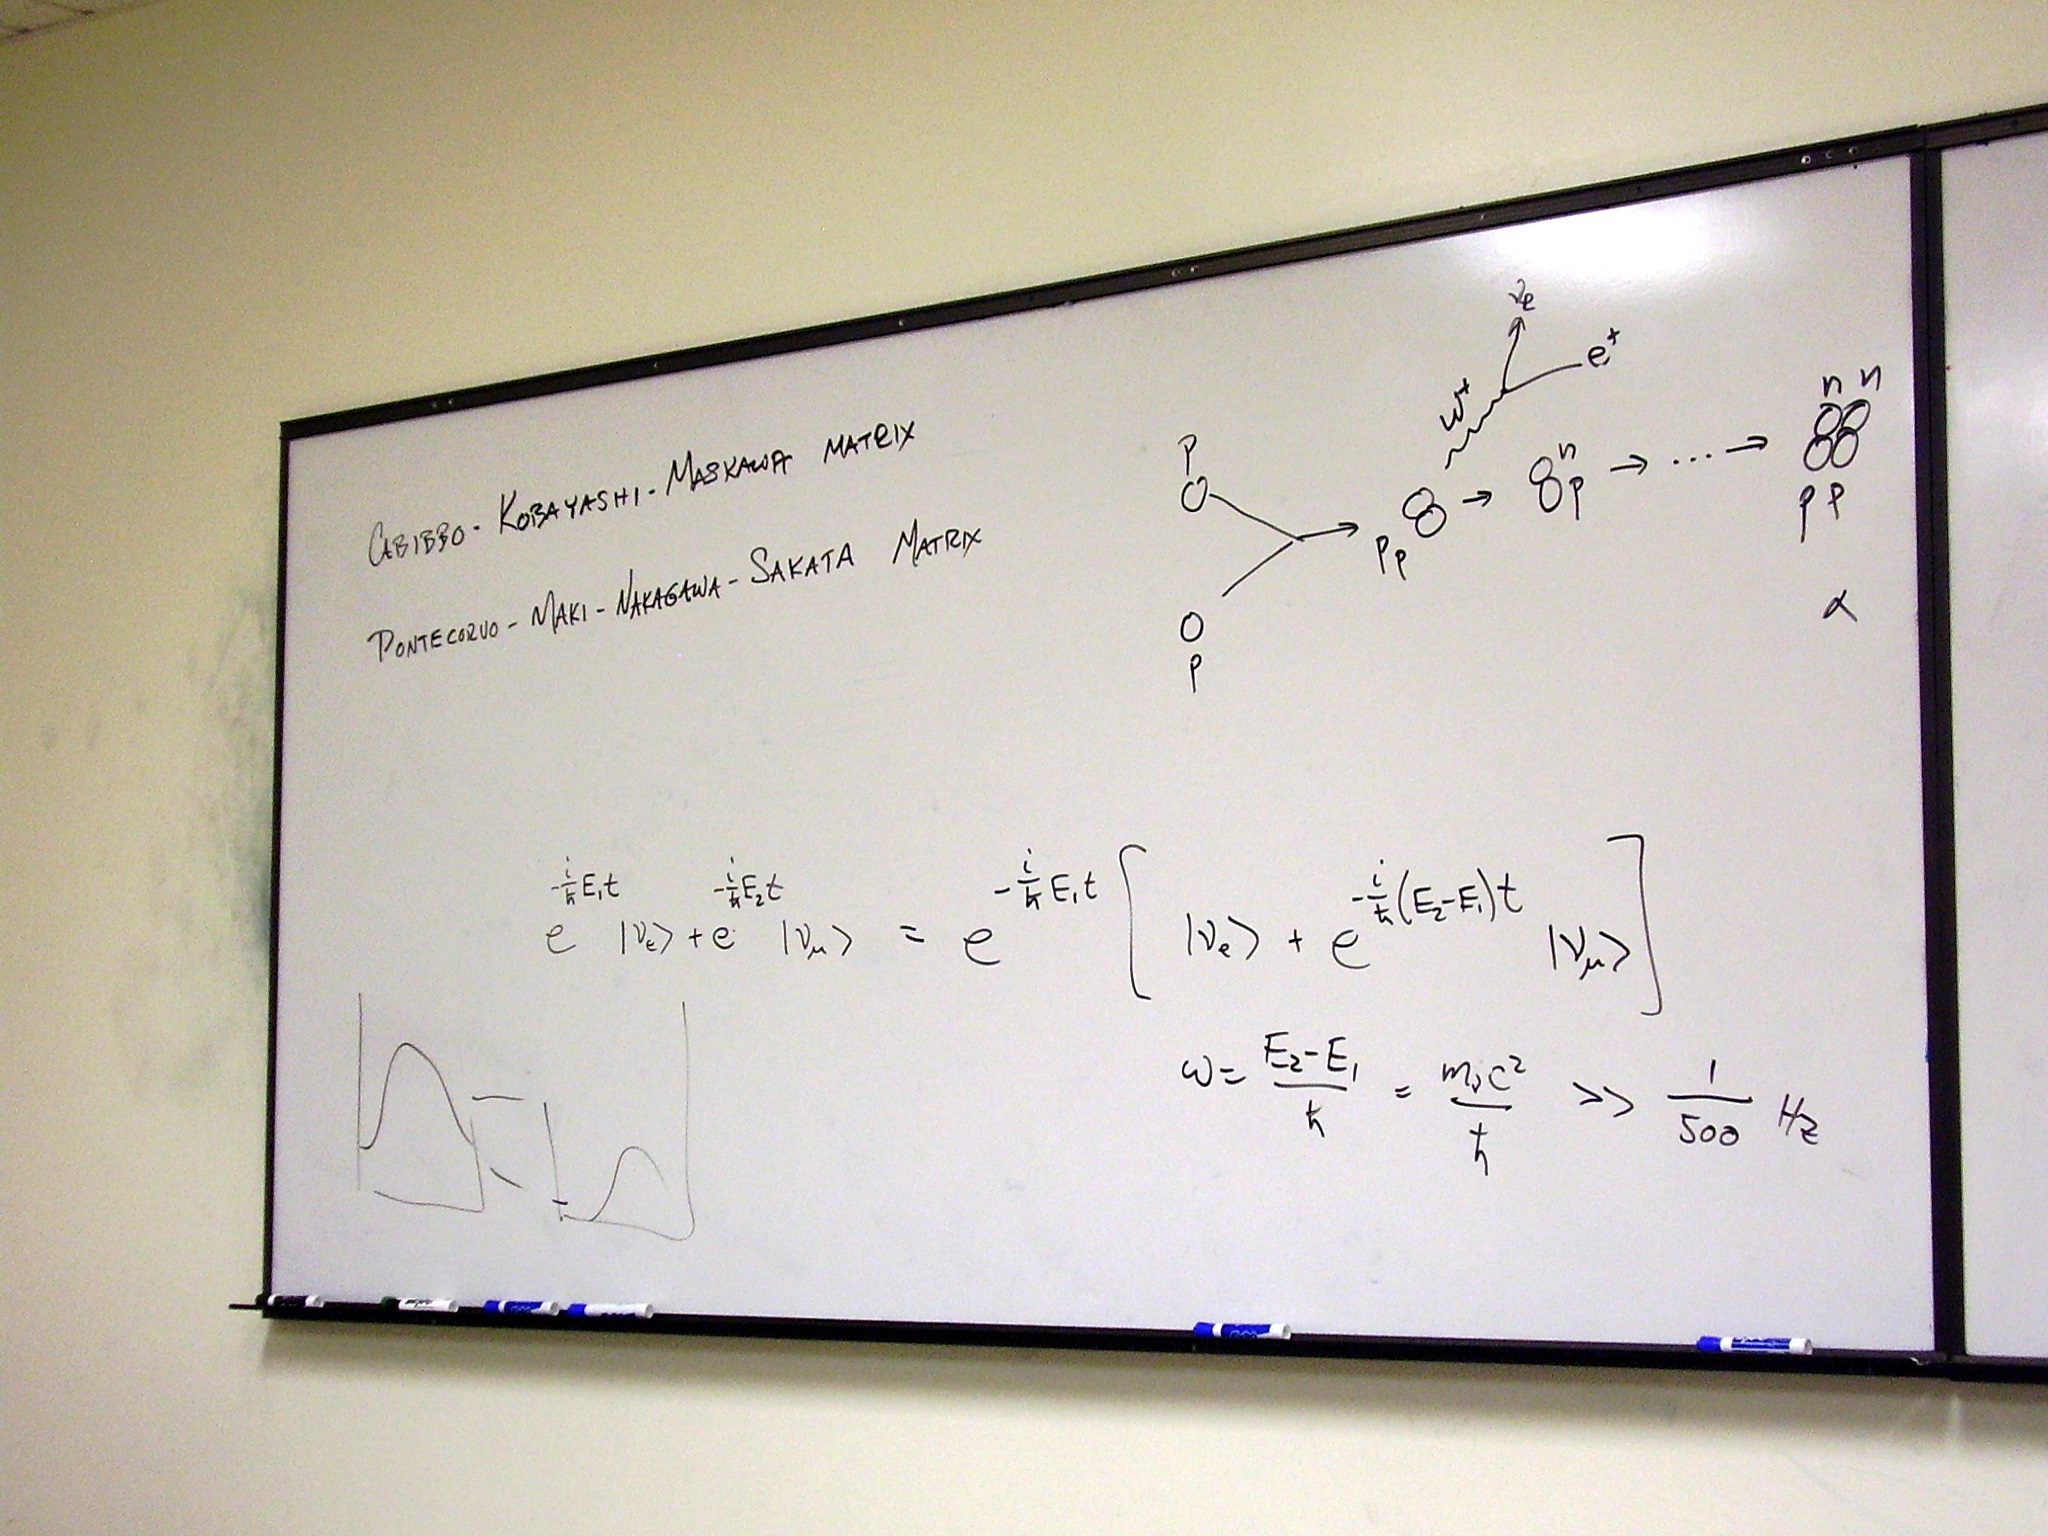 CABIBBO - KOBAYASHI - MASKAWA MATRIX
PONTECORVO - MAKI - NAKAGAWA - SAKATA MATRIX
νe
e⁺
W⁺
P
P
P P
n
P
→ ... →
n n
P P
α
e^{-i/ħ E₁t} |νe⟩ + e^{-i/ħ E₂t} |νμ⟩ = e^{-i/ħ E₁t} [ |νe⟩ + e^{-i/ħ (E₂-E₁)t} |νμ⟩ ]
ω = (E₂-E₁)/ħ = mνc²/ħ >> 1/500 Hz